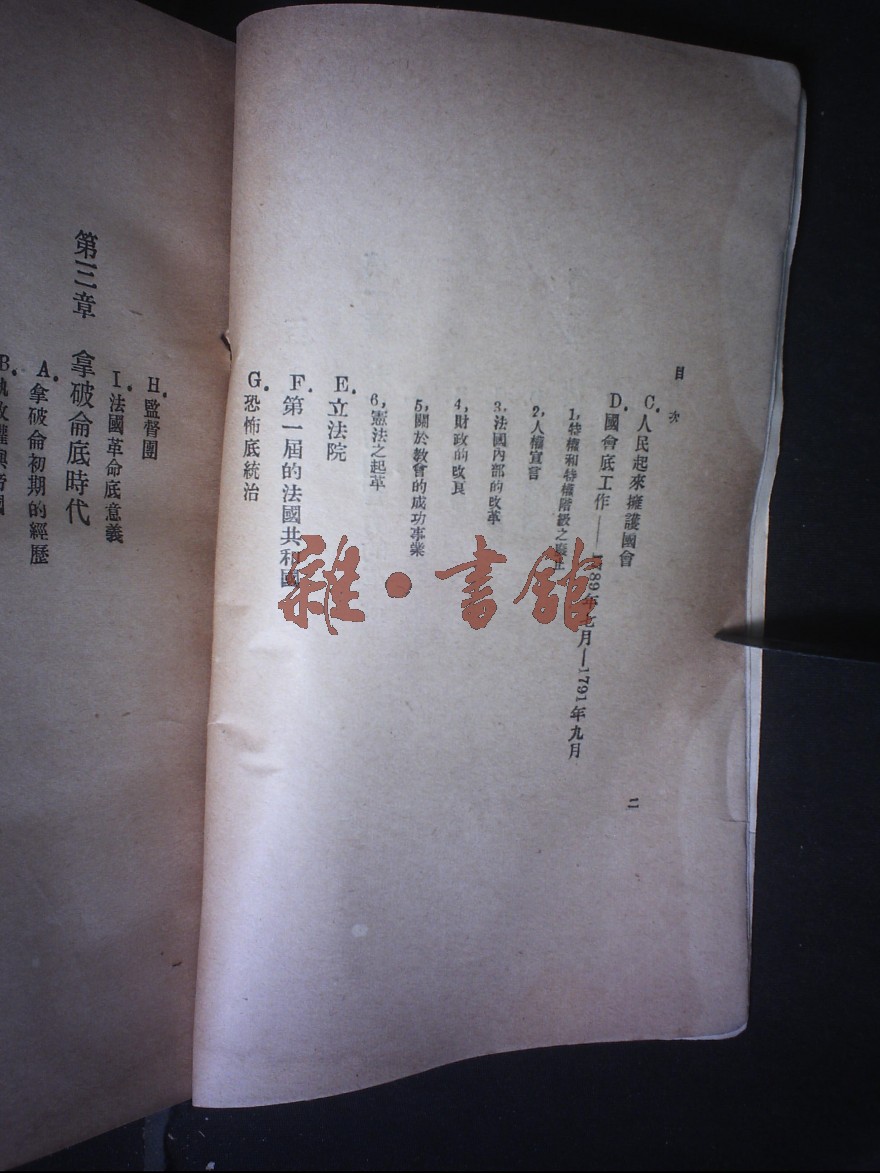 目次
二
C. 人民起來擁護國會
D. 國會底工作——1789年七月—1791年九月
1, 特權和特權階級之廢止
2, 人權宣言
3, 法國內部的改革
4, 財政的改良
5, 關於教會的成功事業
6, 憲法之起革
E. 立法院
F. 第一屆的法國共和國
G. 恐怖底統治
H. 監督團
I. 法國革命底意義
第三章 拿破侖底時代
A. 拿破侖初期的經歷
B.
雜·書館